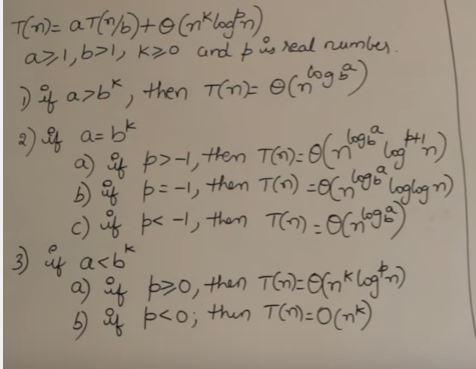 T(n) = aT(n/b) + Θ(n^k log^p n)
a≥1, b>1, k≥0 and p is real number.
1) if a>b^k, then T(n) = Θ(n^{log_b^a})
2) if a=b^k
a) if p>-1, then T(n) = Θ(n^{log_b^a} log^{p+1} n)
b) if p=-1, then T(n) = Θ(n^{log_b^a} loglogn)
c) if p<-1, then T(n) = Θ(n^{log_b^a})
3) if a<b^k
a) if p≥0, then T(n) = Θ(n^k log^p n)
b) if p<0; then T(n) = O(n^k)